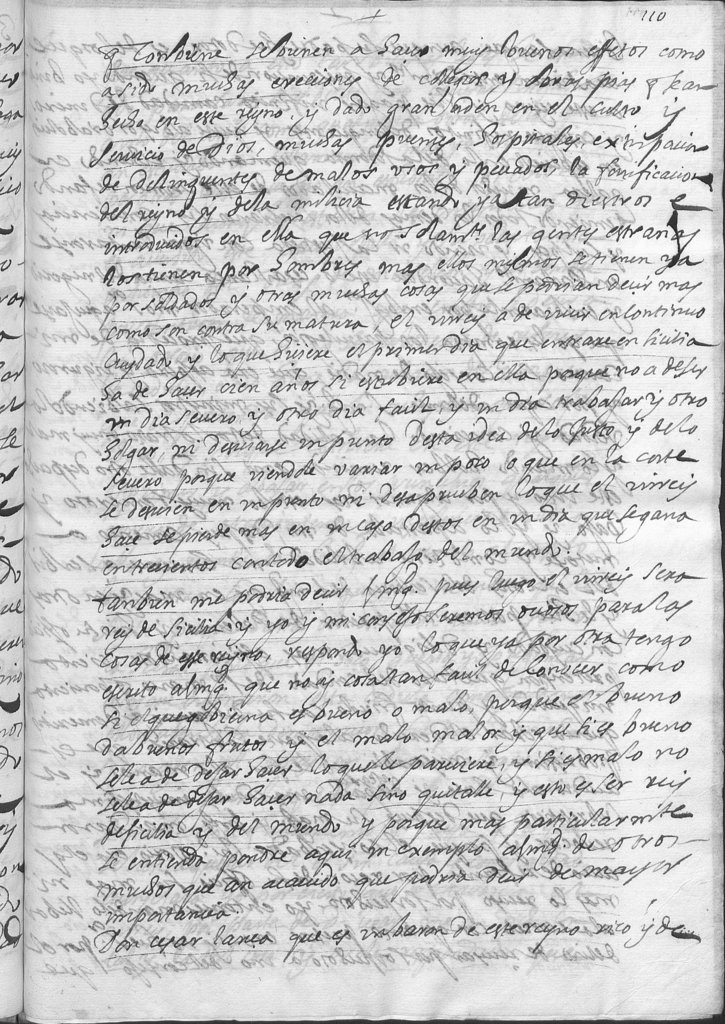 110
q conbiene se bienen a hacer muy buenos effetos como
a sido muchas ereciones de colegios y obras pias q se an
hecho en este reyno, y dado gran orden en el culto y
servicio de Dios, muchas puentes, hospitales, extirpacion
de delinquentes de malos usos y pecados, la fortificacion
del reyno y de la milicia estando ya tan diestros e
introducidos en ella que no solamte las gentes estrañas
los tienen por hombres mas ellos mismos se tienen ya
por soldados y otras muchas cosas que se podrian decir mas
como son contra su natura, el virrei a de vivir en continuo
cuydado y lo que hiziere el primer dia que entrare en sicilia
ha de hacer cien años si estubiere en ella porque no a de ser
un dia severo y otro dia facil, y un dia trabajar y otro
holgar, ni desviarse un punto desta idea de lo justo y de lo
severo porque viendole variar un poco, o que en la corte
se desvien en un punto ni desaprueben lo que el virrei
hace se pierde mas en un caso destos en un dia que se gana
en trecientos con todo el trabajo del mundo.
tambien me podria decir v. mgd. pues luego el virrei sera
rey de sicilia y yo y mi consejo seremos ociosos para las
cosas de esse reyno, respondo yo lo que ya por otra tengo
escrito a v. mgd. que no ay cosa tan facil de conocer como
si el que gobierna es bueno o malo, porque el bueno
da buenos frutos y el malo malos y que si es bueno
se le a de dejar hacer lo que le pareciere, y si es malo no
se le a de dejar hacer nada sino quitalle, y esto es ser rei
de sicilia y del mundo y porque mas particularmte
se entienda pondre aqui un exemplo a v. mgd. de otros
muchos que an acaecido que podria decir de mayor
importancia.
Don cesar lança que es un baron de este reyno rico y de